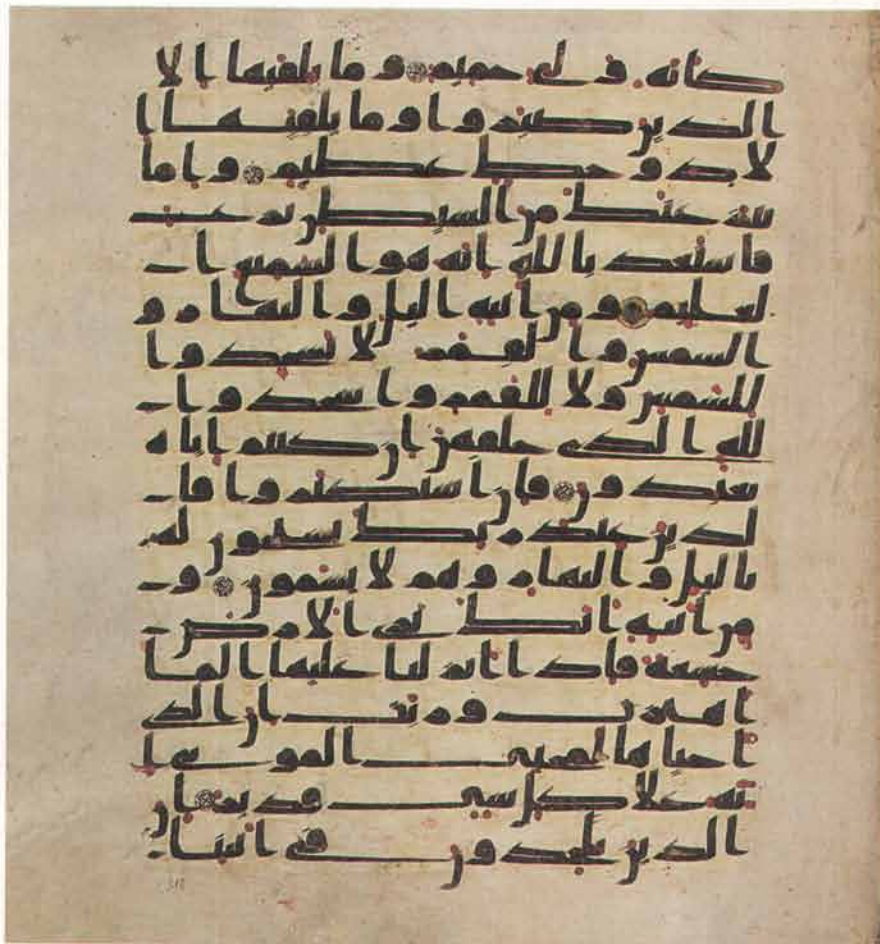 كانه ولى حميم وما يلقيها الا
الذين صبروا وما يلقيها ا
لا ذو حظ عظيم واما
ينزغنك من الشيطن نزغ
فاستعذ بالله انه هو السميع ا
لعليم ومن ايته اليل والنهار و
الشمس والقمر لا تسجدوا
للشمس ولا للقمر واسجدوا
لله الذى خلقهن ان كنتم اياه
تعبدون فان استكبروا فا
لذين عند ربك يسبحون له
باليل والنهار وهم لا يسمون و
من ايته انك ترى الارض
خشعة فاذا انزلنا عليها الما
اهتزت وربت ان الذى
احياها لمحى الموتى ا
نه على كل شى قدير ان
الذين يلحدون فى ايتنا